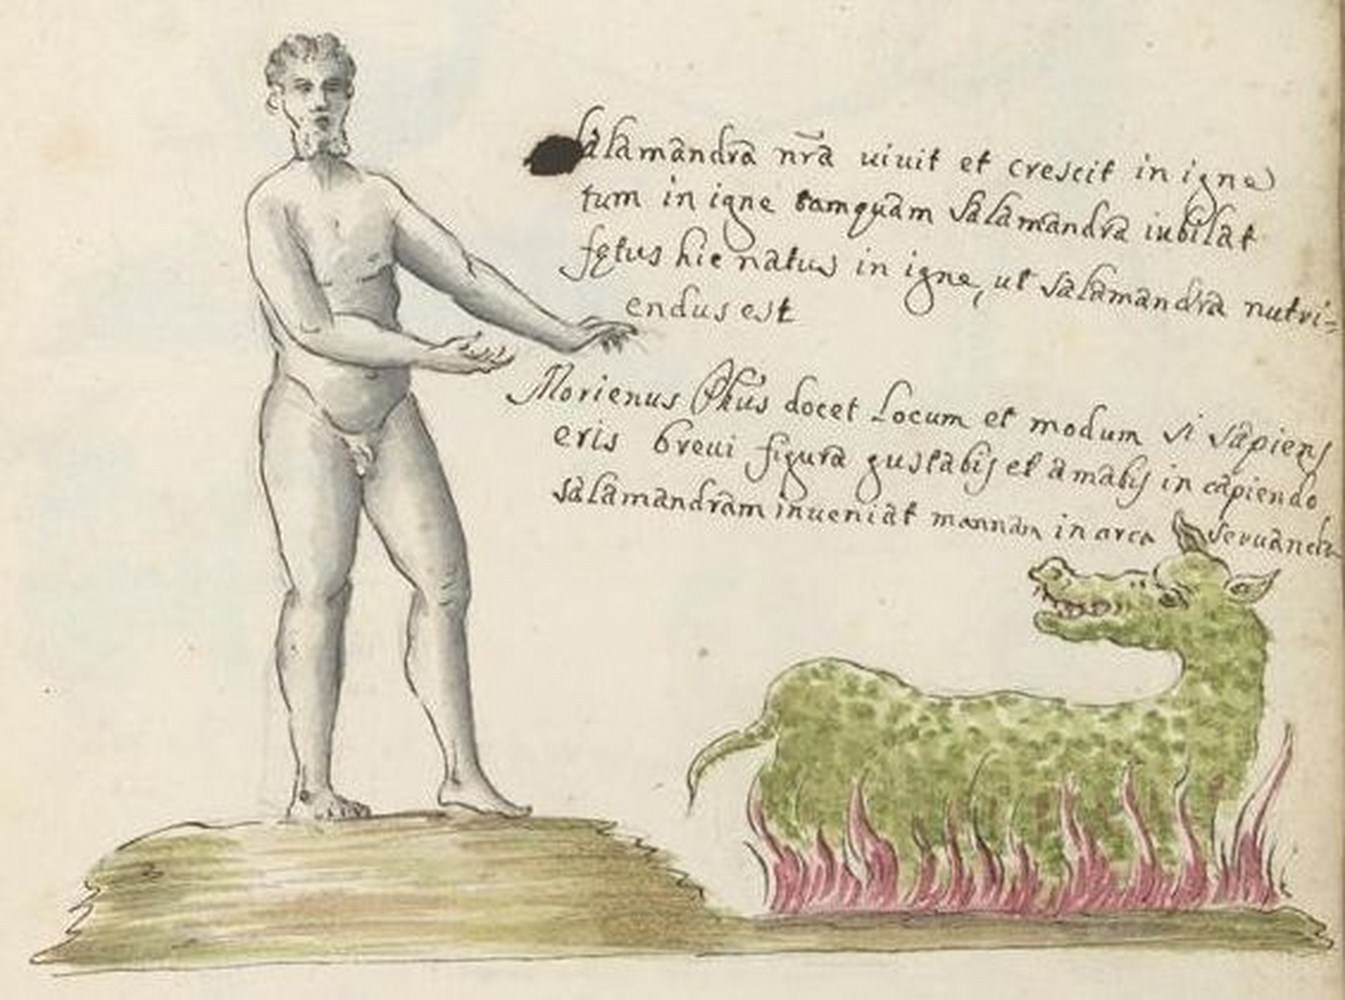 Salamandra nr̃a uiuit et crescit in igne
tum in igne tamquam salamandra iubilat
fętus hic natus in igne, ut salamandra nutri=
endus est
Morienus Phūs docet Locum et modum si sapiens
eris breui figura gustabis et amabis in capiendo
salamandram inueniat mannam in arca seruanda